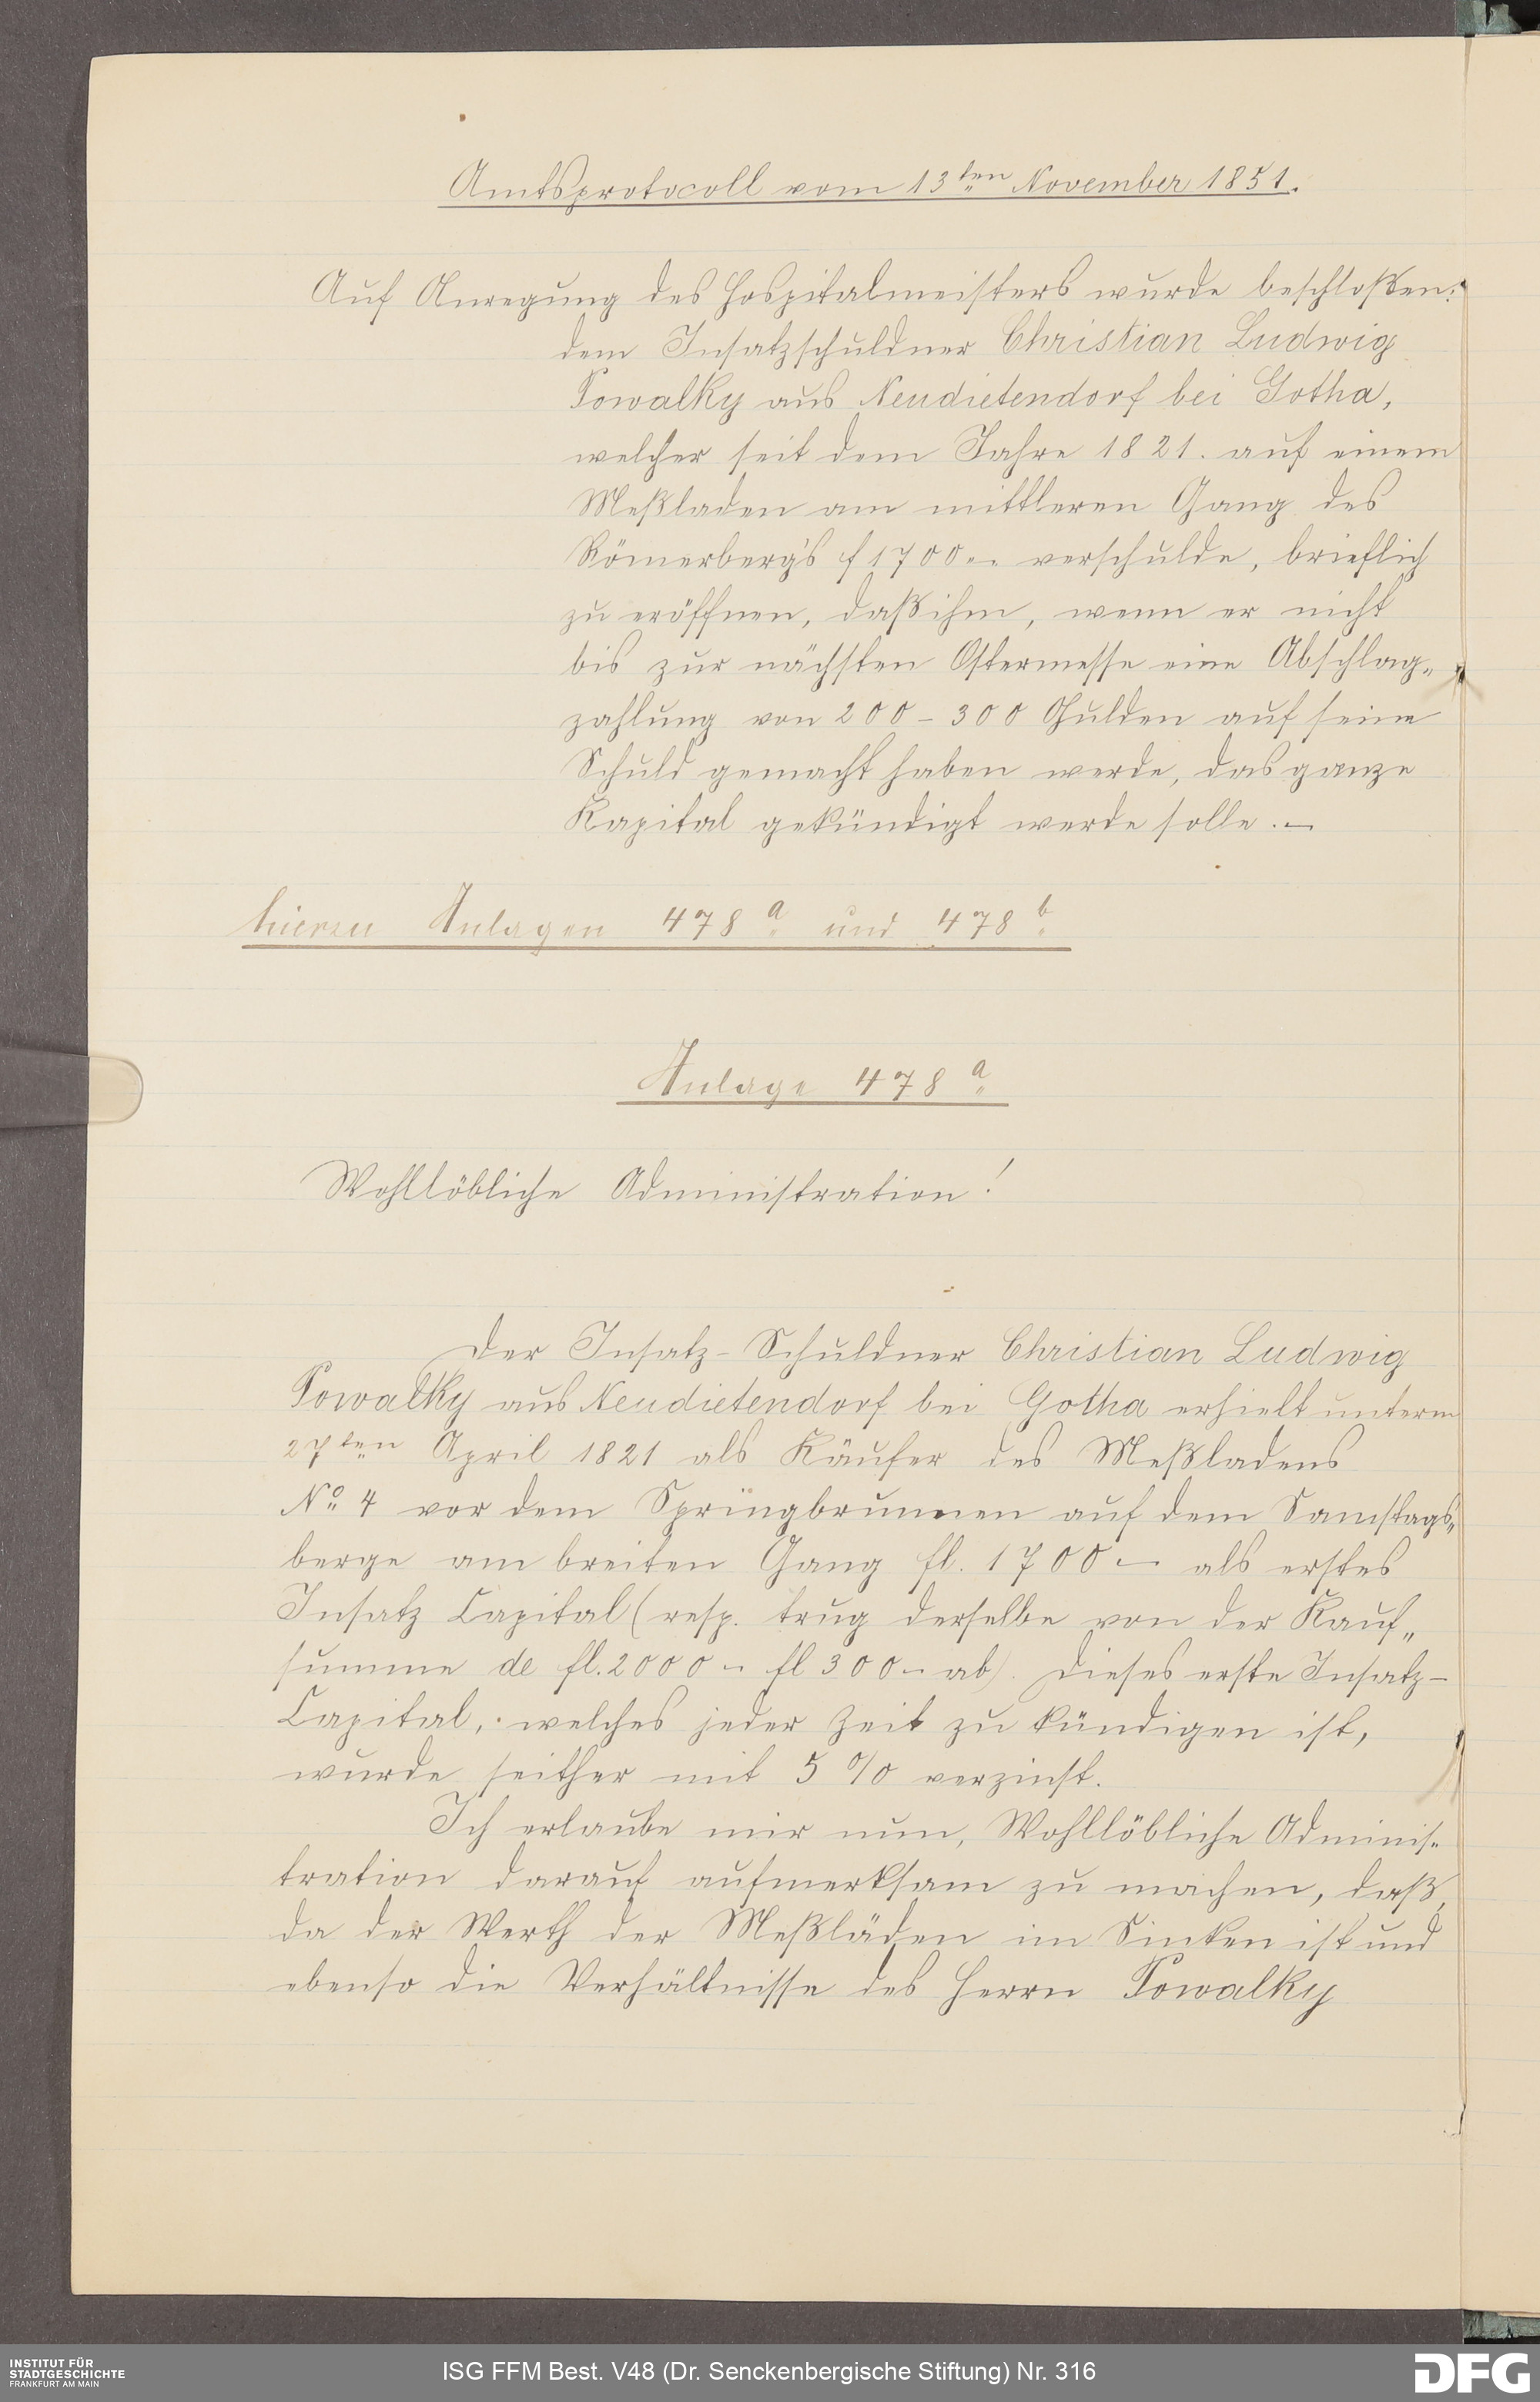 Amtsprotocoll vom 13ten November 1851.
Auf Anregung des Hospitalmeisters wurde beschloßen:
dem Insatzschuldner Christian Ludwig
Powalky aus Neudietendorf bei Gotha,
welcher seit dem Jahre 1821. auf einem
Meßladen am mittleren Gang des
Römerberg's f 1700.-. verschulde, brieflich
zu eröffnen, daß ihm, wenn er nicht
bis zur nächsten Ostermesse eine Abschlag-
zahlung von 200 - 300 Gulden auf seine
Schuld gemacht haben werde, das ganze
Kapital gekündigt werde solle. -
hierzu Anlagen 478a und 478b
Anlage 478a
Wohllöbliche Administration!
Der Insatz-Schuldner Christian Ludwig
Powalky aus Neudietendorf bei Gotha erhielt unterm
27ten April 1821 als Käufer des Meßladens
No. 4 vor dem Springbrunnen auf dem Samstags-
berge am breiten Gang fl. 1700 - als erstes
Insatz Capital (resp. trug derselbe von der Kauf-
summe de fl. 2000 - fl 300 - ab). Dieses erste Insatz-
Capital, welches jeder Zeit zu kündigen ist,
wurde seither mit 5 % verzinst.
Ich erlaube mir nun, Wohllöbliche Adminis-
tration darauf aufmerksam zu machen, daß,
da der Werth der Meßläden im Sinken ist und
ebenso die Verhältnisse des Herrn Powalky
INSTITUT FÜR
STADTGESCHICHTE
FRANKFURT AM MAIN
ISG FFM Best. V48 (Dr. Senckenbergische Stiftung) Nr. 316
DFG